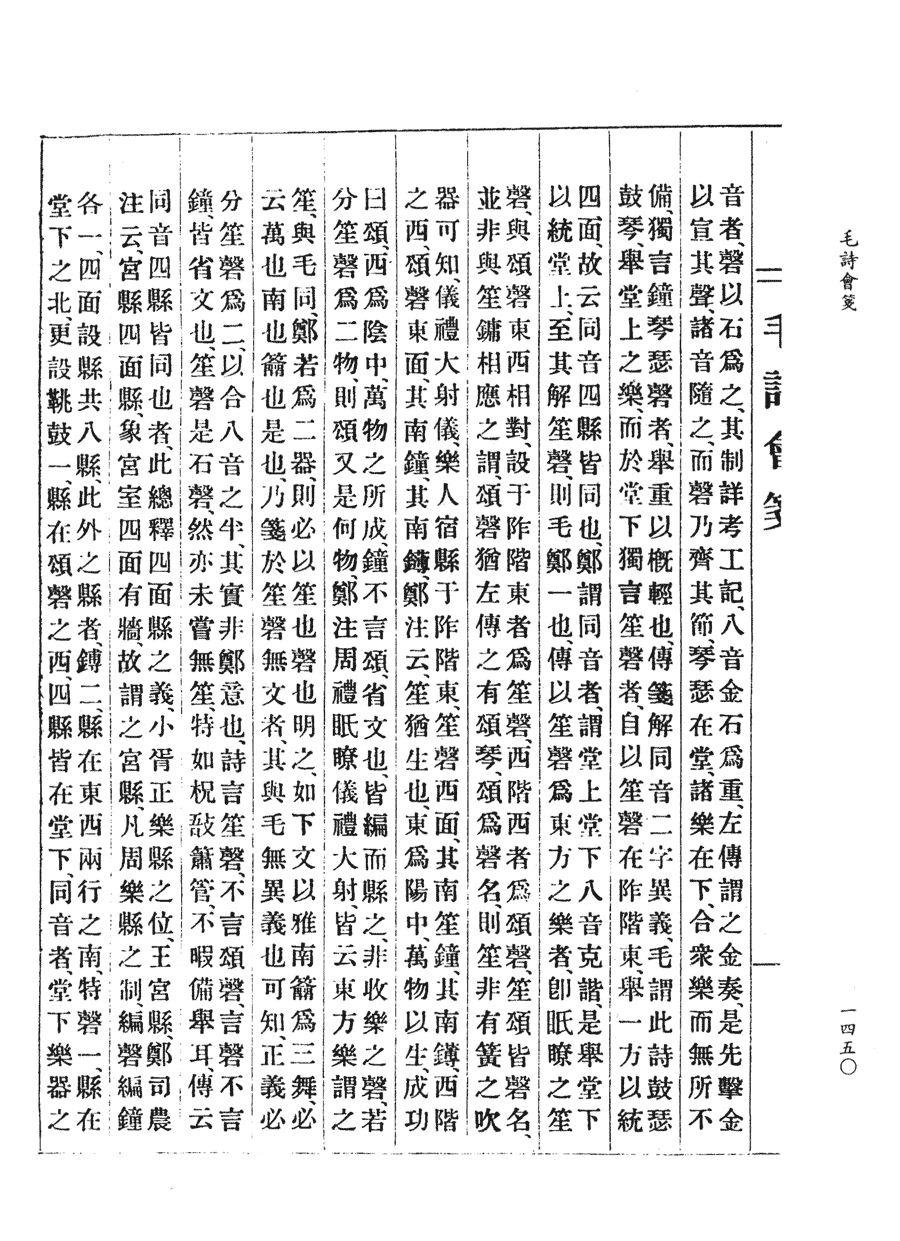 毛詩會箋
一四五〇
毛詩會箋
音者、磬以石爲之、其制詳考工記、八音金石爲重、左傳謂之金奏、是先擊金
以宣其聲、諸音隨之、而磬乃齊其節、琴瑟在堂、諸樂在下、合衆樂而無所不
備、獨言鐘琴瑟磬者、舉重以概輕也、傳箋解同音二字異義、毛謂此詩鼓瑟
鼓琴、舉堂上之樂、而於堂下獨言笙磬者、自以笙磬在阼階東、舉一方以統
四面、故云同音四縣皆同也、鄭謂同音者、謂堂上堂下八音克諧、是舉堂下
以統堂上、至其解笙磬、則毛鄭一也、傳以笙磬爲東方之樂者、卽眂瞭之笙
磬、與頌磬東西相對、設于阼階東者爲笙磬、西階西者爲頌磬、笙頌皆磬名、
並非與笙鏞相應之謂、頌磬猶左傳之有頌琴、頌爲磬名、則笙非有簧之吹
器可知、儀禮大射儀、樂人宿縣于阼階東、笙磬西面、其南笙鐘、其南鑮、西階
之西、頌磬東面、其南鐘、其南鑮、鄭注云、笙猶生也、東爲陽中、萬物以生、成功
曰頌、西爲陰中、萬物之所成、鐘不言頌、省文也、皆編而縣之、非收樂之磬、若
分笙磬爲二物、則頌又是何物、鄭注周禮眂瞭儀禮大射、皆云東方樂謂之
笙、與毛同、鄭若爲二器、則必以笙也磬也明之、如下文以雅南籥爲三舞、必
云萬也南也籥也是也、乃箋於笙磬無文者、其與毛無異義也可知、正義必
分笙磬爲二、以合八音之半、其實非鄭意也、詩言笙磬、不言頌磬、言磬不言
鐘、皆省文也、笙磬是石磬、然亦未嘗無笙、特如柷敔簫管、不暇備舉耳、傳云
同音四縣皆同也者、此總釋四面縣之義、小胥正樂縣之位、王宮縣、鄭司農
注云、宮縣四面縣、象宮室四面有牆、故謂之宮縣、凡周樂縣之制、編磬編鐘
各一、四面設縣共八縣、此外之縣者、鎛二、縣在東西兩行之南、特磬一、縣在
堂下之北更設鼗鼓一、縣在頌磬之西、四縣皆在堂下、同音者、堂下樂器之